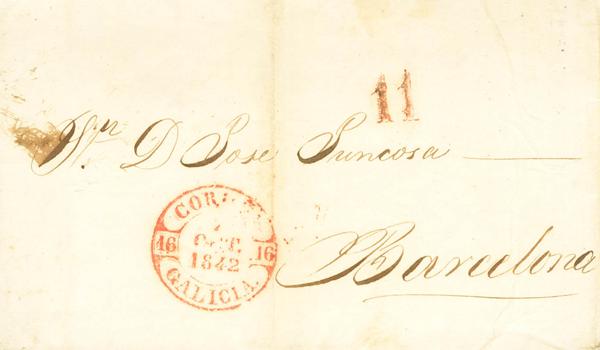 11
Sr. D Jose Juncosa
COR
OCT.
16 16
1842
GALICIA.
Barcelona